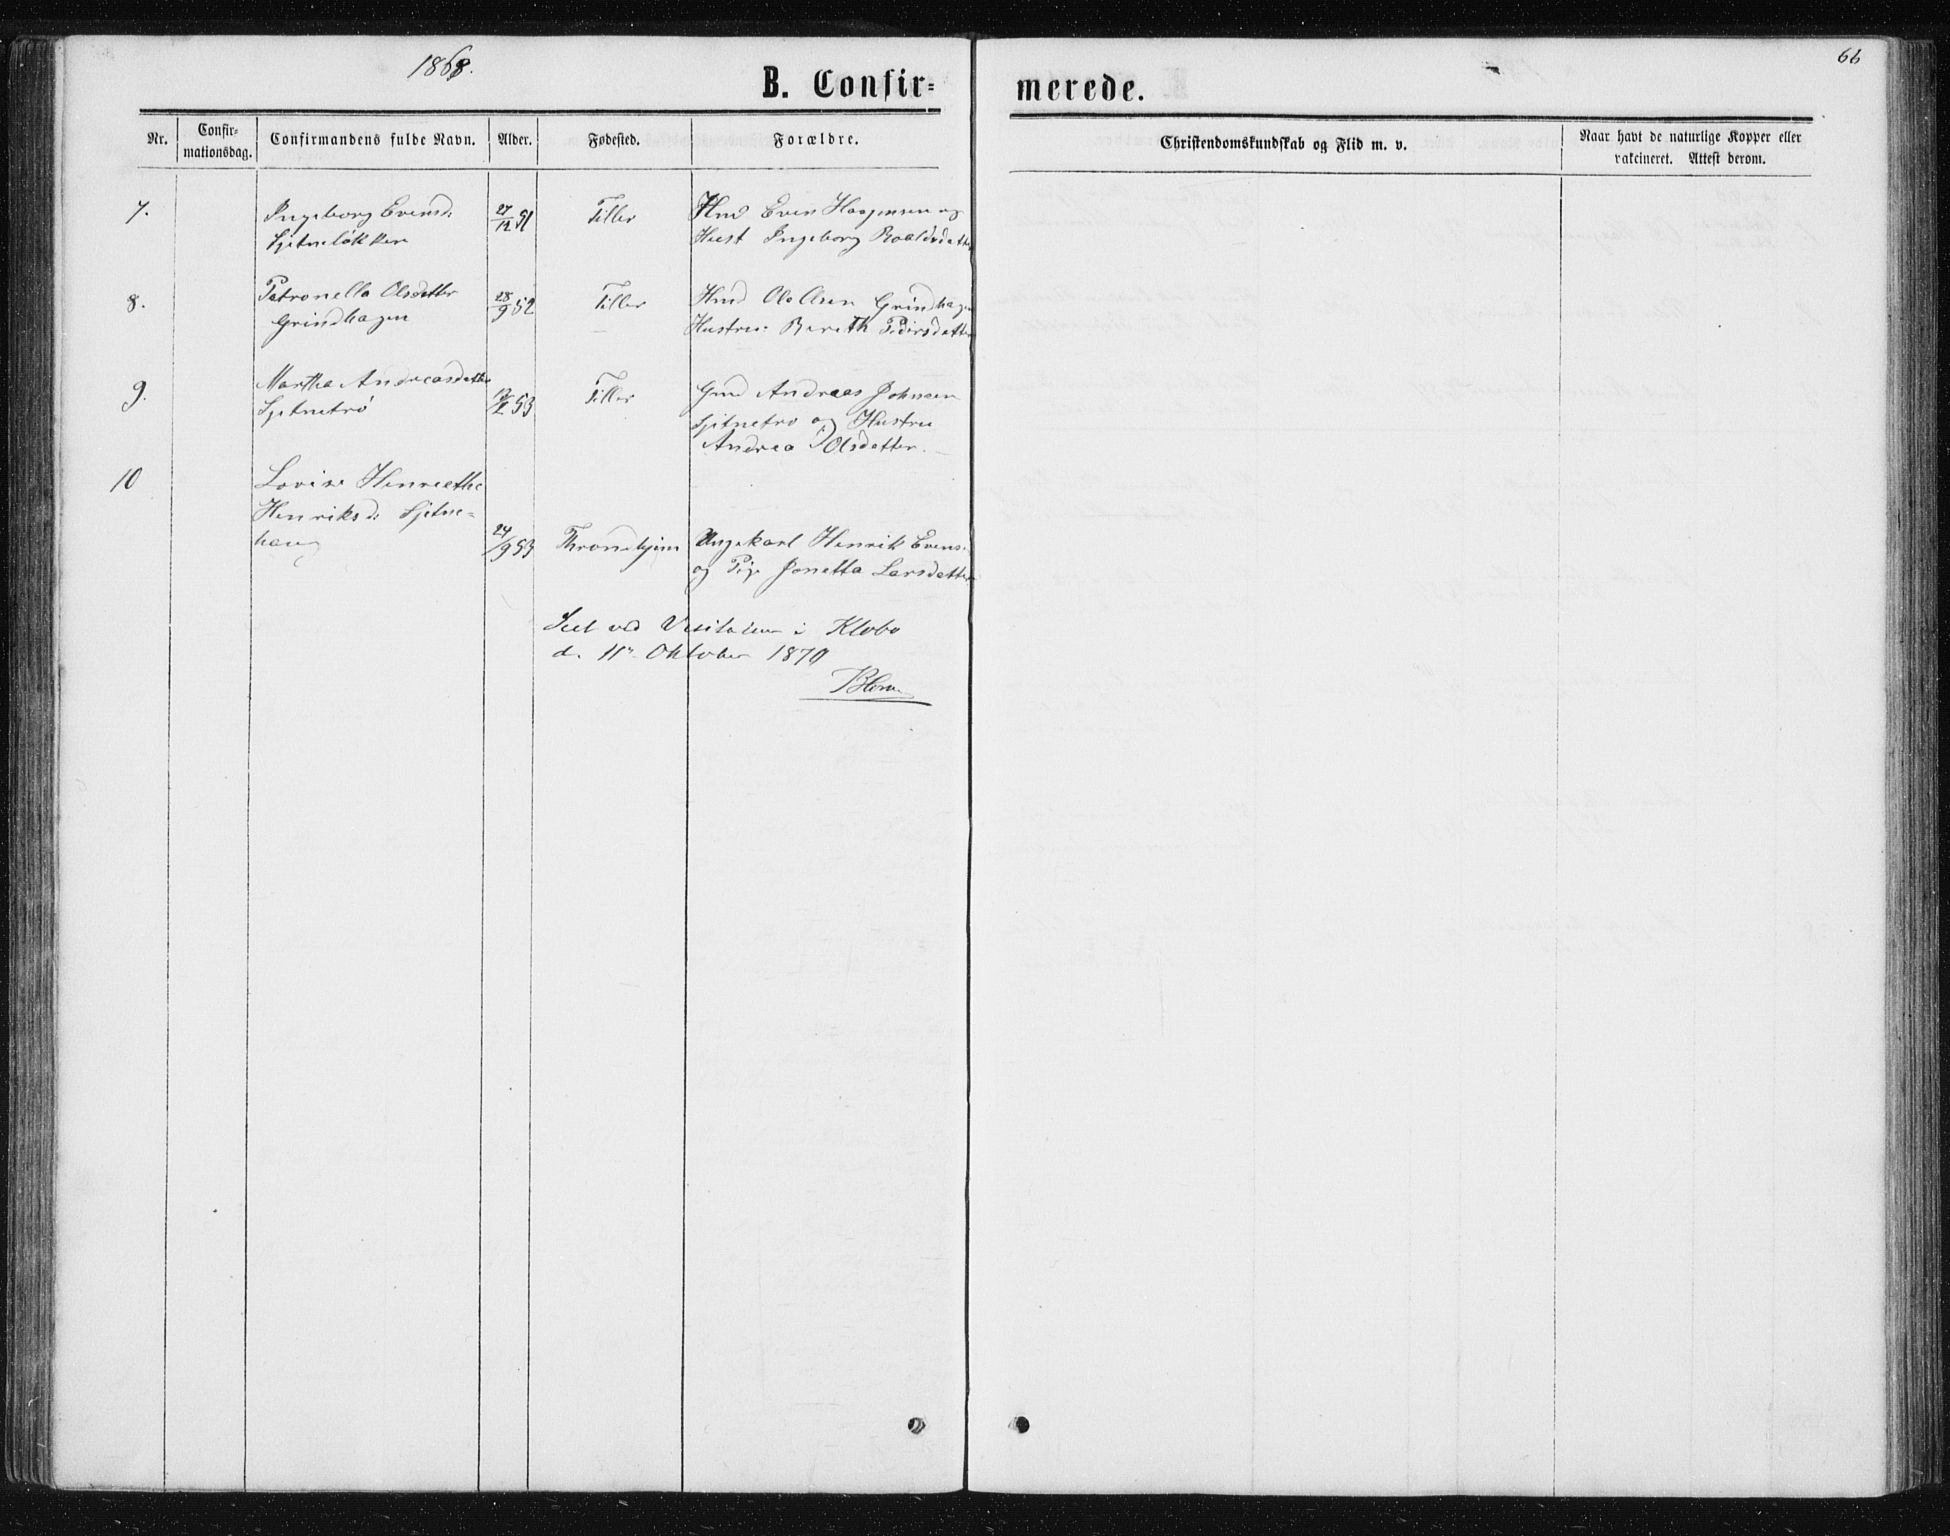 1868.
66
B. Confir=
merede.
Nr.
Confir-
mationsdag.
Confirmandens fulde Navn.
Alder.
Fødested.
Forældre.
Christendomskundskab og Flid m. v.
Naar havt de naturlige Kopper eller
vakcineret. Attest derom.
7.
Ingeborg Evensd:
Sjetneløkken
27/12 51
Tiller
Hmd Even Haagensen og
Hust Ingeborg Roaldsdatter
8.
Petronella Olsdatter
Grindhagen
28/9 52
Tiller
Hmd Ole Olsen Grindhagen
Hustru: Bereth Pedersdatter
9.
Martha Andreasdatter
Sjetnetrø
53
Tiller
Gmd Andreas Johnsen
Sjetnetrø og Hustru
Andrea Olsdatter.
10
Lovise Henriethe
Henriksd: Sjetne=
haug
24/9 53
Throndhjem
Ungekarl Henrik Evensen
og Pige Jonetta Larsdatter
Seet ved Visitatsen i Klæbo
d. 11te Oktober 1870